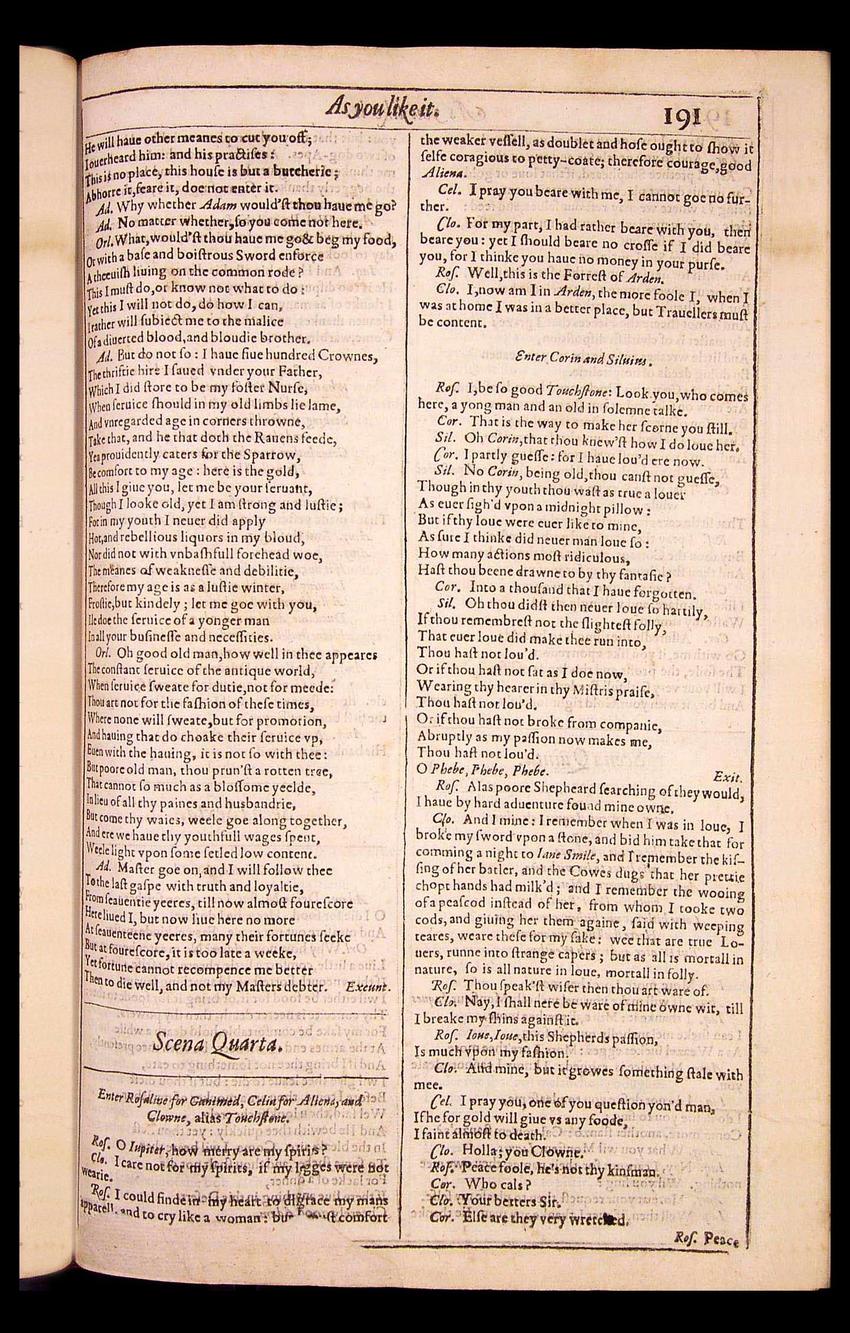 As you like it.
191
He will haue other meanes to cut you off;
I ouerheard him: and his practises:
This is no place, this house is but a butcherie;
Abhorre it, feare it, doe not enter it.
Ad. Why whether Adam would'st thou haue me go?
Ad. No matter whether, so you come not here.
Orl. What, would'st thou haue me go& beg my food,
Or with a base and boistrous Sword enforce
A theeuish liuing on the common rode?
This I must do, or know not what to do:
Yet this I will not do, do how I can,
I rather will subiect me to the malice
Of a diuerted blood, and bloudie brother.
Ad. But do not so: I haue fiue hundred Crownes,
The thriftie hire I saued vnder your Father,
Which I did store to be my foster Nurse,
When seruice should in my old limbs lie lame,
And vnregarded age in corners throwne,
Take that, and he that doth the Rauens feede,
Yea prouidently caters for the Sparrow,
Be comfort to my age: here is the gold,
All this I giue you, let me be your seruant,
Though I looke old, yet I am strong and lustie;
For in my youth I neuer did apply
Hot, and rebellious liquors in my bloud,
Nor did not with vnbashfull forehead woe,
The meanes of weaknesse and debilitie,
Therefore my age is as a lustie winter,
Frostie, but kindely; let me goe with you,
Ile doe the seruice of a yonger man
In all your businesse and necessities.
Orl. Oh good old man, how well in thee appeares
The constant seruice of the antique world,
When seruice sweate for dutie, not for meede:
Thou art not for the fashion of these times,
Where none will sweate, but for promotion,
And hauing that do choake their seruice vp,
Euen with the hauing, it is not so with thee:
But poore old man, thou prun'st a rotten tree,
That cannot so much as a blossome yeelde,
In lieu of all thy paines and husbandrie,
But come thy waies, weele goe along together,
And ere we haue thy youthfull wages spent,
Weele light vpon some setled low content.
Ad. Master goe on, and I will follow thee
To the last gaspe with truth and loyaltie,
From seauentie yeeres, till now almost fourescore
Here liued I, but now liue here no more
At seauenteene yeeres, many their fortunes seeke
But at fourescore, it is too late a weeke,
Yet fortune cannot recompence me better
Then to die well, and not my Masters debter. Exeunt.
Scena Quarta.
Enter Rosaline for Ganimed, Celia for Aliena, and
Clowne, alias Touchstone.
Ros. O Iupiter, how merry are my spirits?
Clo. I care not for my spirits, if my legges were not
wearie.
Ros. I could finde in my heart to disgrace my mans
apparell, and to cry like a woman: but comfort
the weaker vessell, as doublet and hose ought to show it
selfe coragious to petty-coate; therefore courage, good
Aliena.
Cel. I pray you beare with me, I cannot goe no fur-
ther.
Clo. For my part, I had rather beare with you, then
beare you: yet I should beare no crosse if I did beare
you, for I thinke you haue no money in your purse.
Ros. Well, this is the Forrest of Arden.
Clo. I, now am I in Arden, the more foole I, when I
was at home I was in a better place, but Trauellers must
be content.
Enter Corin and Siluius.
Ros. I, be so good Touchstone: Look you, who comes
here, a yong man and an old in solemne talke.
Cor. That is the way to make her scorne you still.
Sil. Oh Corin, that thou knew'st how I do loue her.
Cor. I partly guesse: for I haue lou'd ere now.
Sil. No Corin, being old, thou canst not guesse,
Though in thy youth thou wast as true a louer
As euer sigh'd vpon a midnight pillow:
But if thy loue were euer like to mine,
As sure I thinke did neuer man loue so:
How many actions most ridiculous,
Hast thou beene drawne to by thy fantasie?
Cor. Into a thousand that I haue forgotten.
Sil. Oh thou didst then neuer loue so hartily,
If thou remembrest not the slightest folly,
That euer loue did make thee run into,
Thou hast not lou'd.
Or if thou hast not sat as I doe now,
Wearing thy hearer in thy Mistris praise,
Thou hast not lou'd.
Or if thou hast not broke from companie,
Abruptly as my passion now makes me,
Thou hast not lou'd.
O Phebe, Phebe, Phebe. Exit.
Ros. Alas poore Shepheard searching of they would,
I haue by hard aduenture found mine owne.
Clo. And I mine: I remember when I was in loue, I
broke my sword vpon a stone, and bid him take that for
comming a night to Iane Smile, and I remember the kis-
sing of her batler, and the Cowes dugs that her prettie
chopt hands had milk'd; and I remember the wooing
of a peascod instead of her, from whom I tooke two
cods, and giuing her them againe, said with weeping
teares, weare these for my sake: wee that are true Lo-
uers, runne into strange capers; but as all is mortall in
nature, so is all nature in loue, mortall in folly.
Ros. Thou speak'st wiser then thou art ware of.
Clo. Nay, I shall nere be ware of mine owne wit, till
I breake my shins against it.
Ros. Ioue, Ioue, this Shepherds passion,
Is much vpon my fashion.
Clo. And mine, but it growes something stale with
mee.
Cel. I pray you, one of you question yon'd man,
If he for gold will giue vs any foode,
I faint almost to death.
Clo. Holla; you Clowne.
Ros. Peace foole, he's not thy kinsman.
Cor. Who cals?
Clo. Your betters Sir.
Cor. Else are they very wretched.
Ros. Peace